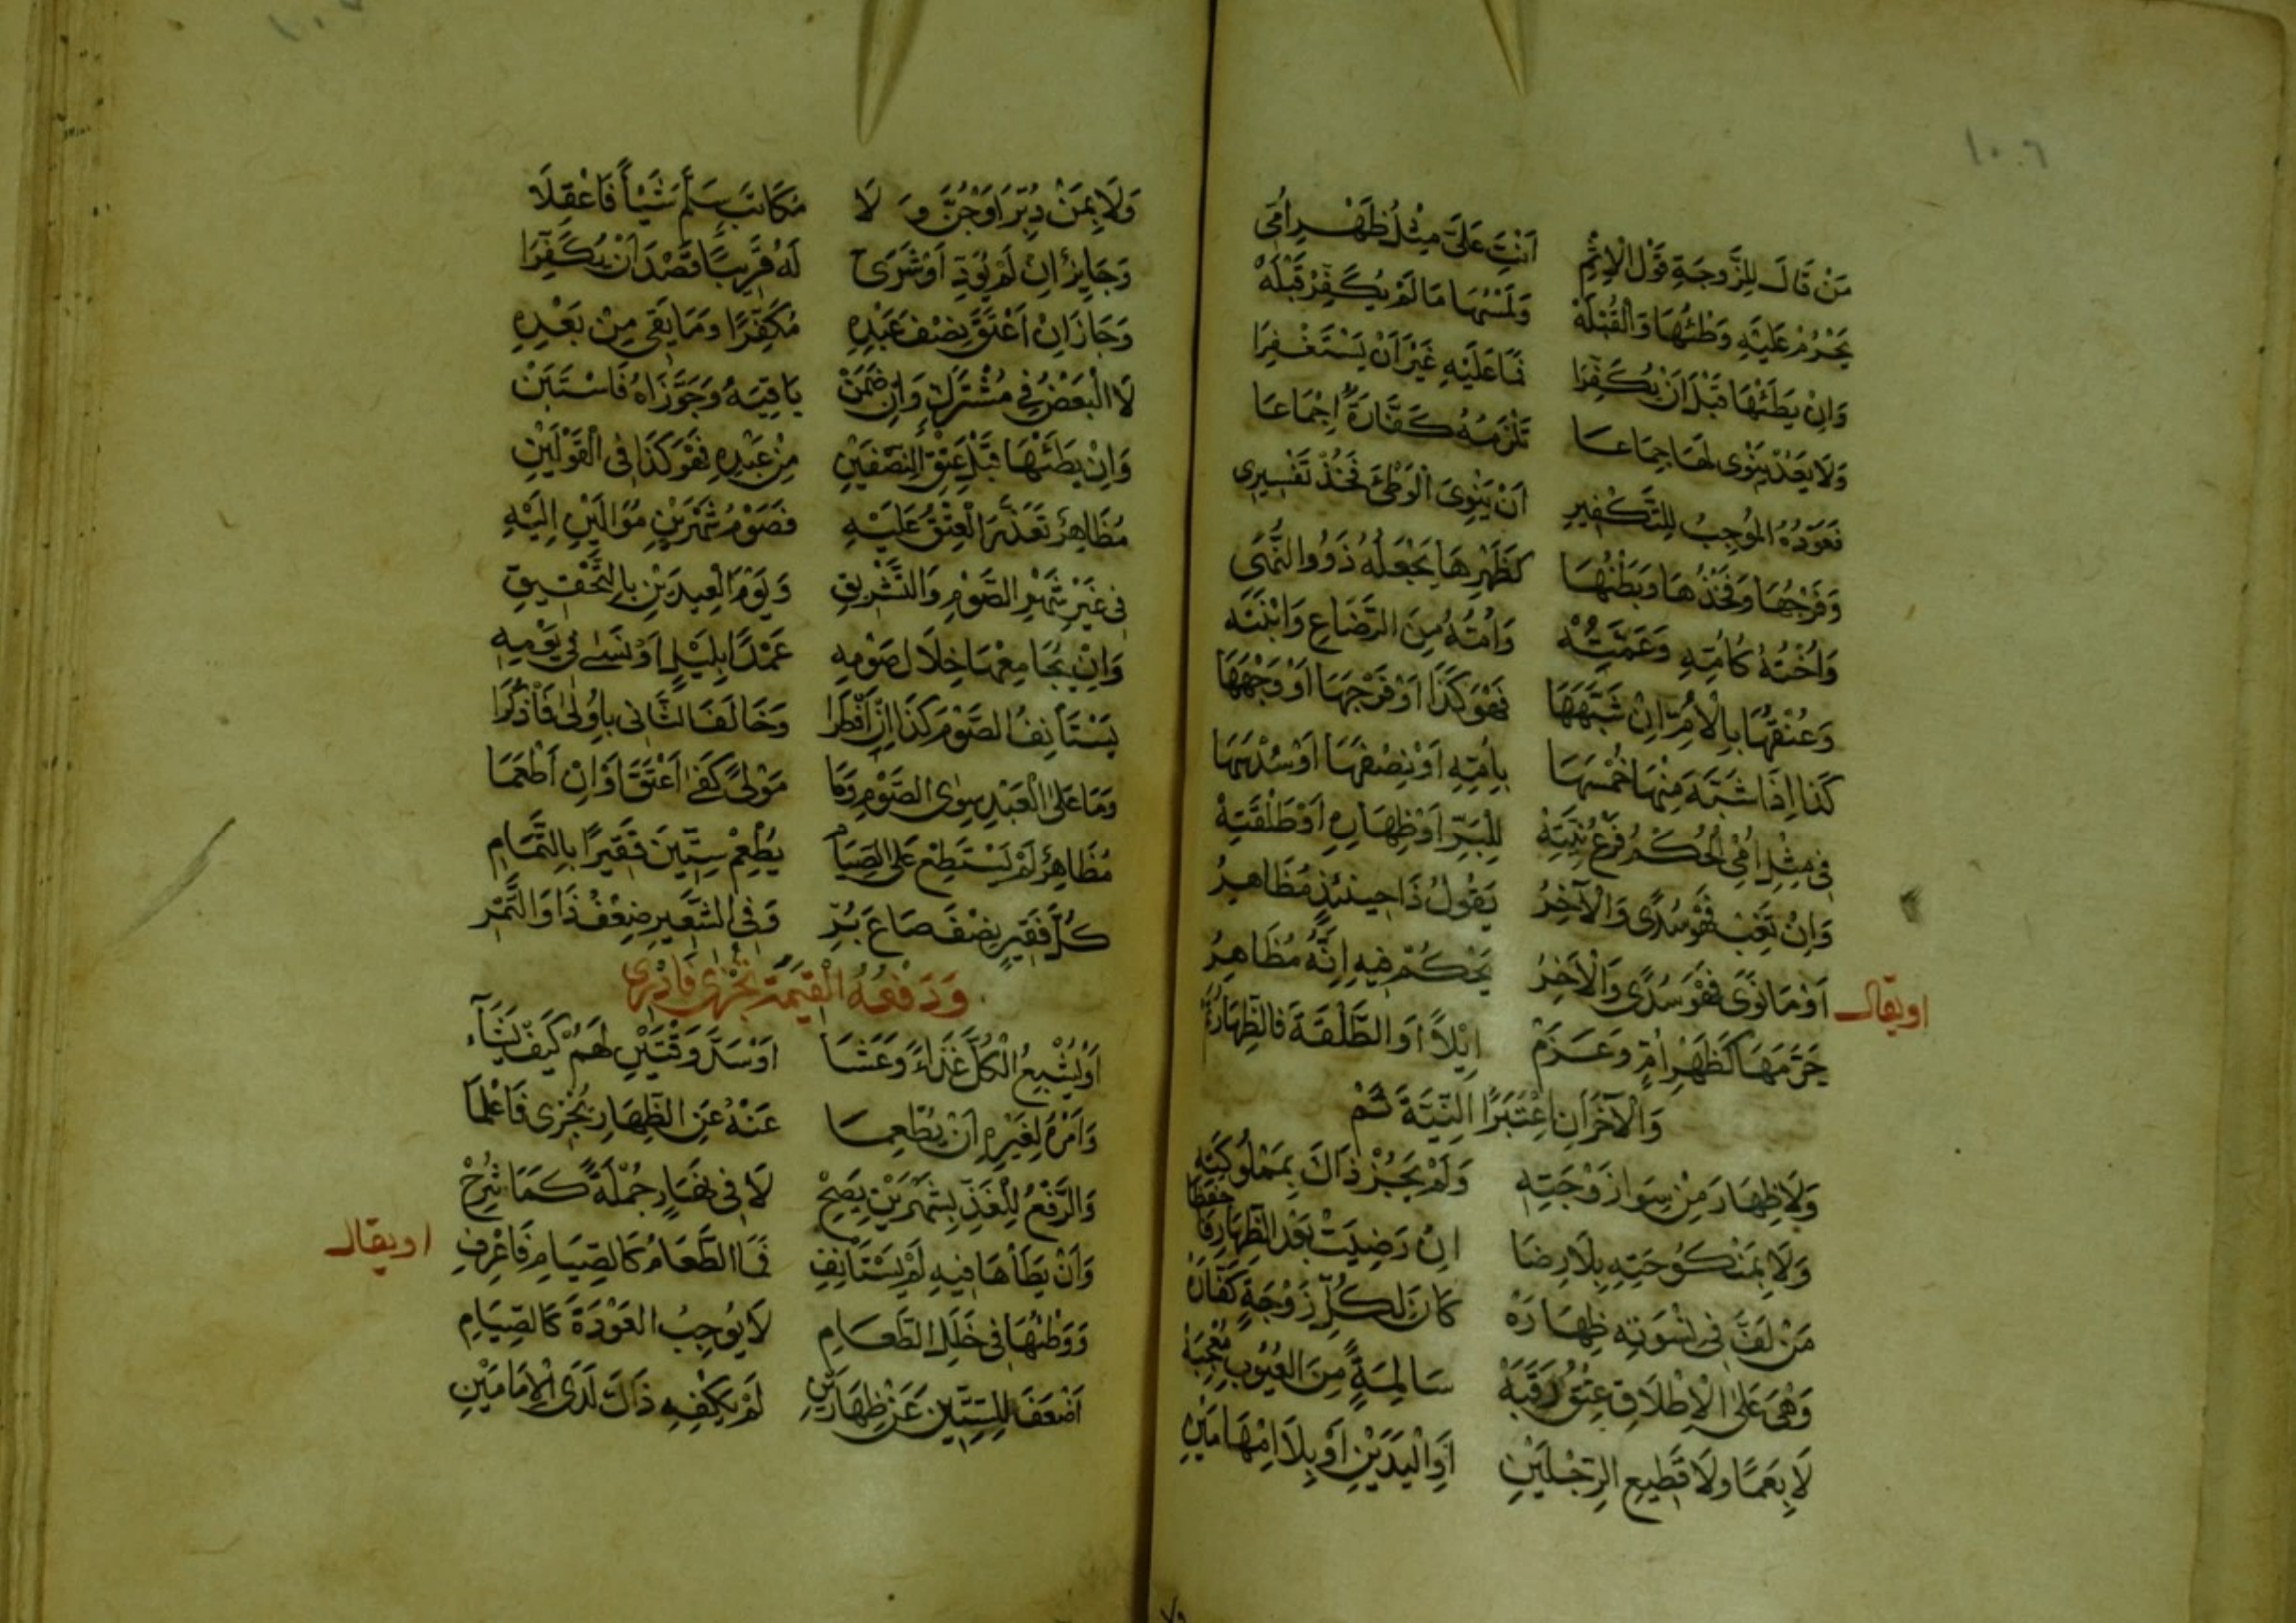 ١٠٦
مَنْ قَالَ لِلزَّوجَةِ قَوْلَ الْاِثْمِ اَنْتِ عَلَىَّ مِثْلُ ظَهْرِ اُمِّى
يَحْرُمْ عَلَيْهِ وَطْئُهَا وَالْقُبْلَهْ وَلَمْسُهَا مَا لَمْ يُكَفِّرْ قَبْلَهْ
وَاِنْ يَطَئْهَا قَبْلَ اَنْ يُكَفِّرَا فَمَا عَلَيْهِ غَيْرَ اَنْ يَسْتَغْفِرَا
وَلَا يَعُدْ يَنْوِى لَهَا جِمَاعَا تَلْزَمُهُ كَفَّارَةٌ اِجْمَاعَا
فَعَوْدُهُ الْمُوجِبُ لِلتَّكْفِيرِ اَنْ يَنْوِىَ الْوَطْئَ فَخُذْ تَفْسِيرِى
وَفَرْجُهَا وَفَخْذُهَا وَبَطْنُهَا كَظَهْرِهَا يَجْعَلُهُ ذَوُو النُّهَى
وَاُخْتُهُ كَاُمِّهِ وَعَمَّتُهْ وَاُمُّهُ مِنَ الرَّضَاعِ وَابْنَتُه
وَعُنْقُهَا بِالْاُمِّ اِنْ شَبَّهَهَا فَهْوَ كَذَا اَوْ فَرْجَهَا اَوْ وَجْهَهَا
كَذَا اِذَا شَبَّهَ مِنْهَا خُمْسَهَا بِاُمِّهِ اَوْ نِصْفَهَا اَوْ سُدْسَهَا
فِى مِثْلِ اُمِّى الْحُكْمُ فَرْعُ نِيَّتِهْ لِلْبِرِّ اَوْ ظِهَارِهِ اَوْ طَلْقَتِهْ
وَاِنْ تَغِبْ فَهْوَ سُدًى وَالْآخِرُ يَقُولُ ذَا حِينَئِذٍ مُظَاهِرُ
او يقال
اَوْ مَا نَوَى فَهْوَ سُدًى وَالْآخِرُ يَحْكُمْ فِيهِ اِنَّهُ مُظَاهِرُ
حَرَّمَهَا كَظَهْرِ اُمٍّ وَعَزَمْ اِيْلًا اَوِ الطَّلْقَةَ فَالظِّهَارُ
وَالْآخَرَانِ اعْتَبَرَا النِّيَّةَ ثَمْ
وَلَا ظِهَارَ مِنْ سِوَا زَوْجَتِهِ وَلَمْ يَجُزْ ذَاكَ بِمَمْلُوكَتِهِ
وَلَا بِمَنْكُوحَتِهِ بِلَا رِضَا اِنْ رَضِيَتْ بَعْدَ الظِّهَارِ فَاحْفَظَا
مَنْ لَفَّ فِى نِسْوَتِهِ ظِهَارَهْ كَانَ لِكُلِّ زَوْجَةٍ كَفَّارَهْ
وَهْىَ عَلَى الْاِطْلَاقِ عِتْقُ رَقَبَهْ سَالِمَةٍ مِنَ الْعُيُوبِ مُعْجِبَهْ
لَا بِعَمًا وَلَا قَطِيعِ الرِّجْلَيْنِ اَوِ الْيَدَيْنِ اَوْ بِلَا اِبْهَامَيْنِ
وَلَا بِمَنْ دُبِّرَ اَوْ جُنَّ وَ لَا مُكَاتَبٍ سَلَّمَ شَيْاً فَاعْقِلَا
وَجَايِزٌ اِنْ لَمْ يُؤَدِّ اَوْ شَرَى لَهُ قَرِيبًا قَصْدَ اَنْ يُكَفِّرَا
وَجَازَ اِنْ اَعْتَقَ نِصْفَ عَبْدِهِ مُكَفِّرًا وَمَا بَقِى مِنْ بَعْدِهِ
لَا الْبَعْضُ فِى مُشْتَرَكٍ وَاِنْ ضَمَنْ بَاقِيَهُ وَجَوَّزَاهُ فَاسْتَبَنْ
وَاِنْ يَطَئْهَا قَبْلَ عِتْقِ النِّصْفَيْنِ مِنْ عَبْدِهِ فَهْوَ كَذَا فِى الْقَوْلَيْنِ
مُظَاهِرٌ تَعَذَّرَ الْعِتْقُ عَلَيْهِ فَصَوْمُ شَهْرَيْنِ مُوَالَيْنِ اِلَيْهِ
فِى غَيْرِ شَهْرِ الصَّوْمِ وَالتَّشْرِيقِ وَيَوْمَ الْعِيدَيْنِ بِالتَّحْقِيقِ
وَاِنْ يُجَامِعْهَا خِلَالَ صَوْمِهِ عَمْدًا بِلَيْلٍ اَوْ نَسَى فِى يَوْمِهِ
يَسْتَأْنِفُ الصَّوْمَ كَذَا اِنْ اَفْطَرَا وَخَالَفَ الثَّانِى بِاُولَى فَاذْكُرَا
وَمَا عَلَى الْعَبْدِ سِوَى الصَّوْمِ وَمَا مَوْلًى كَفَى اَعْتَقَ اَوْ اِنْ اَطْعَمَا
مُظَاهِرٌ لَمْ يَسْتَطِعْ عَلَى الصِّيَامِ يُطْعِمْ سِتِّينَ فَقِيرًا بِالتَّمَامِ
كُلَّ فَقِيرٍ نِصْفَ صَاعَ بُرِّ وَفِى الشَّعِيرِ ضِعْفُ ذَا وَالتَّمْرِ
وَدَفْعُهُ الْقِيمَةَ تُجْزِى فَادْرِى
اَوْ يُشْبِعُ الْكُلَّ غَدَاءً وَعَشَا اَوْ سَدَّ وَقْتَيْنِ لَهُمْ كَيْفَ يَشَآءُ
وَاَمْرُهُ لِغَيْرِهِ اَنْ يُطْعِمَا عَنْهُ عَنِ الظِّهَارِ يُجْزِى فَاعْلَمَا
وَالدَّفْعُ لِلْفَذِّ بِشَهْرَيْنِ يَصِحْ لَا فِى نَهَارٍ جُمْلَةً كَمَا شُرِحْ
وَاَنْ يَطَأْهَا فِيهِ لَمْ يَسْتَأْنِفِ فَمَا الطَّعَامُ كَالصِّيَامِ فَاعْرِفِ
او يقال
وَوَطْئُهَا فِى خَلَلِ الطَّعَامِ لَا يُوجِبُ الْعَوْدَةَ كَالصِّيَامِ
اَضْعَفَ لِلسِّتِّينَ عَنْ ظِهَارَيْنِ لَمْ يَكْفِهِ ذَاكَ لَدَى الْاِمَامَيْنِ